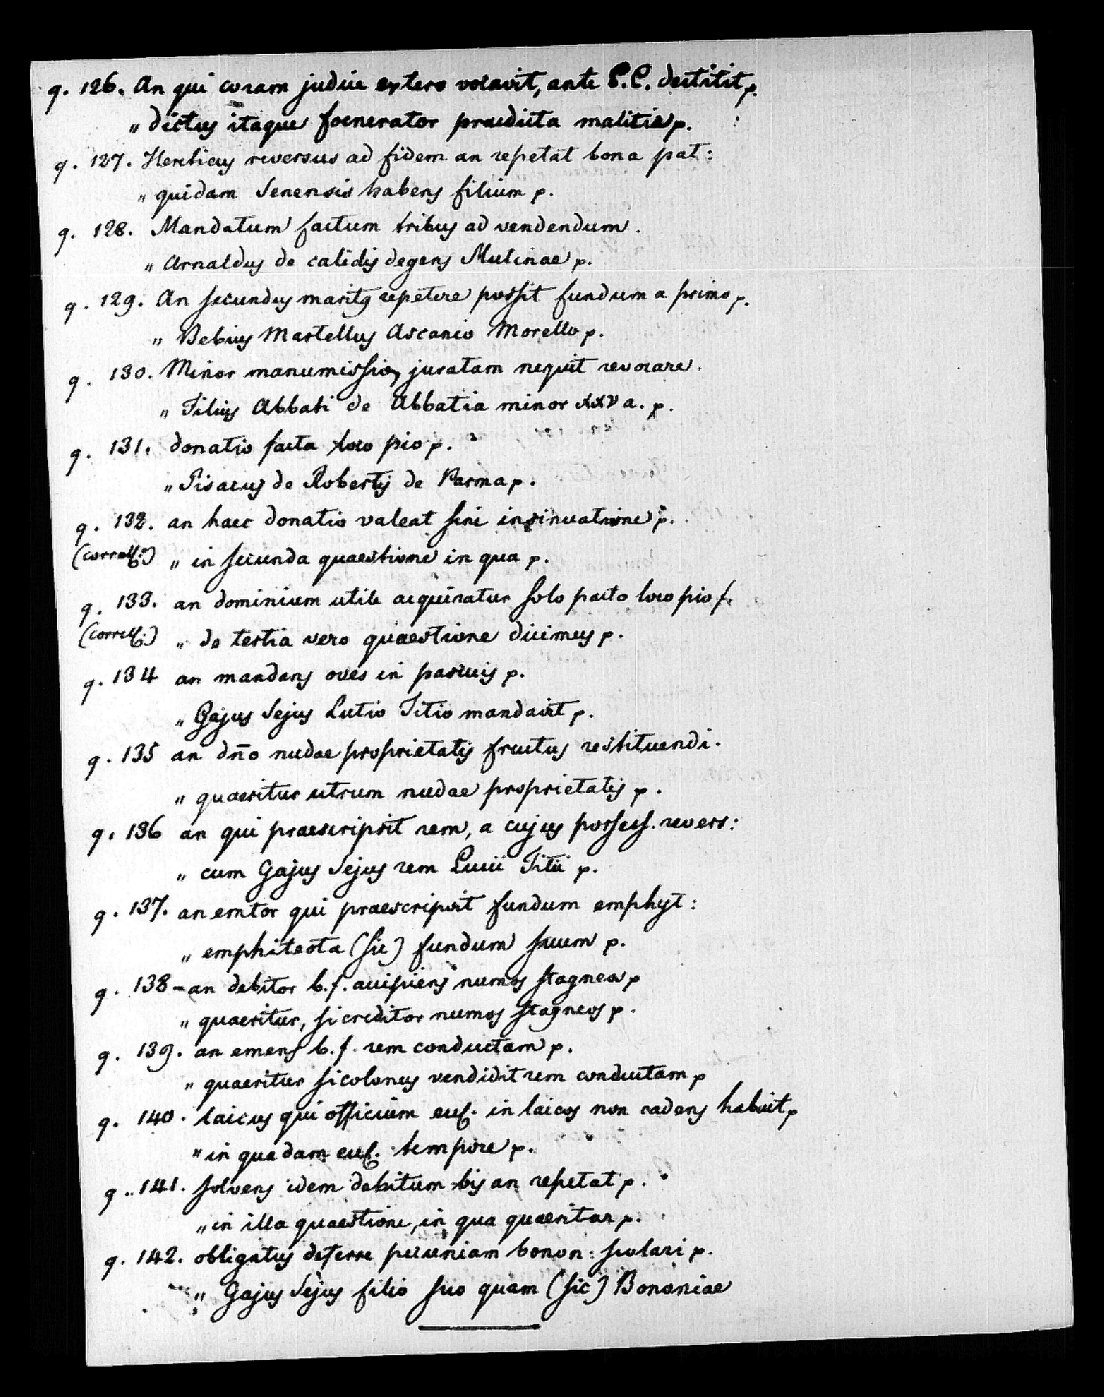 q. 126. An qui coram judice extero vocavit, ante L.C. destitit p.
" dictus itaque foenerator praedicta malitia p.
q. 127. Hereticus reversus ad fidem an repetat bona pat:
" quidam Senensis habens filium p.
q. 128. Mandatum factum tribus ad vendendum.
" Arnaldus de calidis degens Mutinae p.
q. 129. An secundus maritus repetere possit fundum a primo p.
" Bebius Martellus Ascanio Morello p.
q. 130. Minor manumissio juratam nequit revocare.
" Filius Abbati de Abbatia minor XXV a. p.
q. 131. donatio facta loco pio p.
" Pisacus de Robertis de Parma p.
q. 132. an haec donatio valeat sine insinuatione p.
(correll:) " in secunda quaestione in qua p.
q. 133. an dominium utile acquiratur solo pacto loco pio p.
(correll:) " de tertia vero quaestione dicimus p.
q. 134 an mandans oves in pascuis p.
" Gajus Sejus Lutio Titio mandavit p.
q. 135 an dño nudae proprietatis fructus restituendi.
" quaeritur utrum nudae proprietatis p.
q. 136 an qui praescripsit rem, a cujus possess. revers:
" cum Gajus Sejus rem Lucii Titii p.
q. 137. an emtor qui praescripsit fundum emphyt:
" emphiteota (sic) fundum suum p.
q. 138 - an debitor b.f. accipiens numos stagneos p
" quaeritur, si creditor numos stagneos p.
q. 139. an emens b.f. rem conductam p.
" quaeritur si colonus vendidit rem conductam p
q. 140. laicus qui officium eccl. in laicos non cadens habuit p
" in quadam eccl. tempore p.
q. 141. solvens idem debitum bis an repetat p.
" in illa quaestione, in qua quaeritur p.
q. 142. obligatus deferre pecuniam bonon: scolari p.
" Gajus Sejus filio suo quam (sic) Bononiae